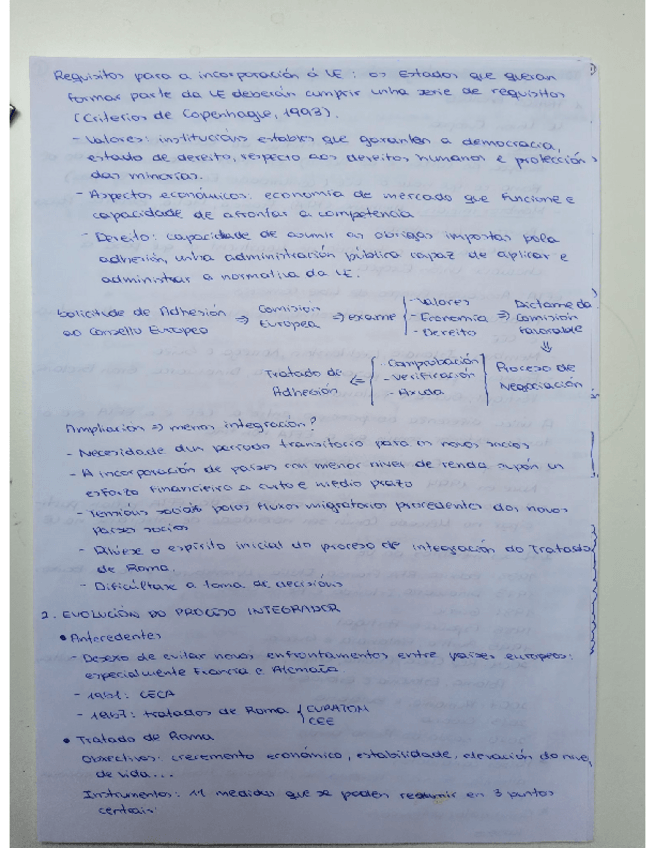 Requisitos para a incorporación á UE: os Estados que queran
formar parte da UE deberán cumprir unha serie de requisitos
(Criterios de Copenhague, 1993).
- Valores: institucións estables que garanten a democracia,
estado de dereito, respecto aos dereitos humanos e protección
das minorías.
- Aspectos económicos: economía de mercado que funcione e
capacidade de afrontar a competencia
- Dereito: capacidade de asumir as obrigas impostas pola
adhesión, unha administración pública capaz de aplicar e
administrar a normativa da UE.
Solicitude de Adhesión ao Consello Europeo ⇒ Comisión Europea ⇒ exame { - Valores - Economía - Dereito ⇒ Dictame da Comisión favorable
⇓
Tratado de Adhesión ⇐ { - Comprobación - Verificación - Axuda } Proceso de Negociación
Ampliación ⇒ menos integración?
- Necesidade dun período transitorio para os novos socios
- A incorporación de países con menor nivel de renda supón un
esforzo financieiro a curto e medio prazo
- Tensións sociais polos fluxos migratorios procedentes dos novos
países socios
- Dilúese o espírito inicial do proceso de integración do Tratado
de Roma.
- Dificúltase a toma de decisións
2. EVOLUCIÓN DO PROCESO INTEGRADOR
• Antecedentes
- Desexo de evitar novos enfrontamentos entre países europeos:
especialmente Francia e Alemaña
- 1951: CECA
- 1957: tratados de Roma { EURATOM
CEE
• Tratado de Roma
Obxectivos: crecemento económico, estabilidade, elevación do nivel
de vida...
Instrumentos: 11 medidas que se poden resumir en 3 puntos
centrais: